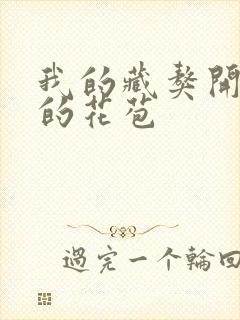 我的藏獒開
的花苞
過完一个輪回